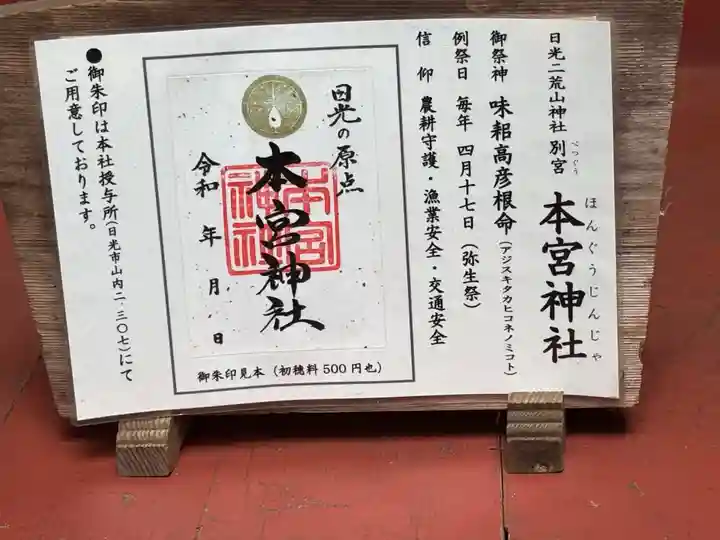 日光二荒山神社 別宮 本宮神社
べつぐう
ほんぐうじんじゃ
御祭神 味耜高彦根命(アジスキタカヒコネノミコト)
例祭日 毎年 四月十七日(弥生祭)
信仰 農耕守護・漁業安全・交通安全
日光の原点
本宮神社
本宮神社
令和 年 月 日
御朱印見本(初穂料500円也)
●御朱印は本社授与所(日光市山内二-三〇七)にて
ご用意しております。